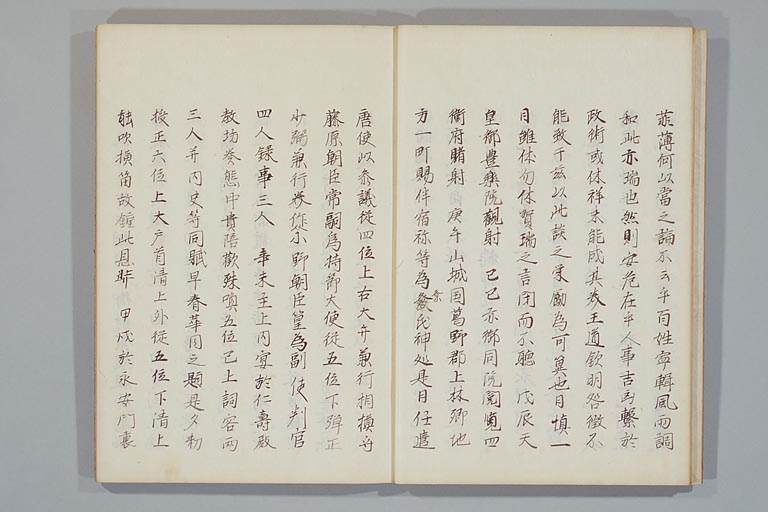 菲薄何以當之論不云乎百姓寧輯風雨調
和此亦瑞也然則安危在乎人事吉凶繋於
政術或休祥未能成其美王道欽明咎徴不
能致于茲以此談之栄勵為可冀也日慎一
日雖休勿休賀瑞之言閇而不聴 戊辰天
皇都豊樂院観射 己巳亦御同院閲覧四
衛府賭射 庚午山城国葛野郡上林卿地
方一町賜伴宿祢等為發氏神処是日任遣
祭
唐使以参議從四位上右大弁兼行相摸守
藤原朝臣常嗣為持節大使從五位下弾正
少弼兼行美作小野朝臣篁為副使判官
四人録事三人 辛未主上内宴於仁壽殿
教坊奏態中貴陪歡殊喚五位已上詞客両
三人并内史等同賦早春華月之題是夕勅
授正六位上大戸首清上外從五位下清上
能吹横笛故鐘此恩時 甲戌於永安門裏